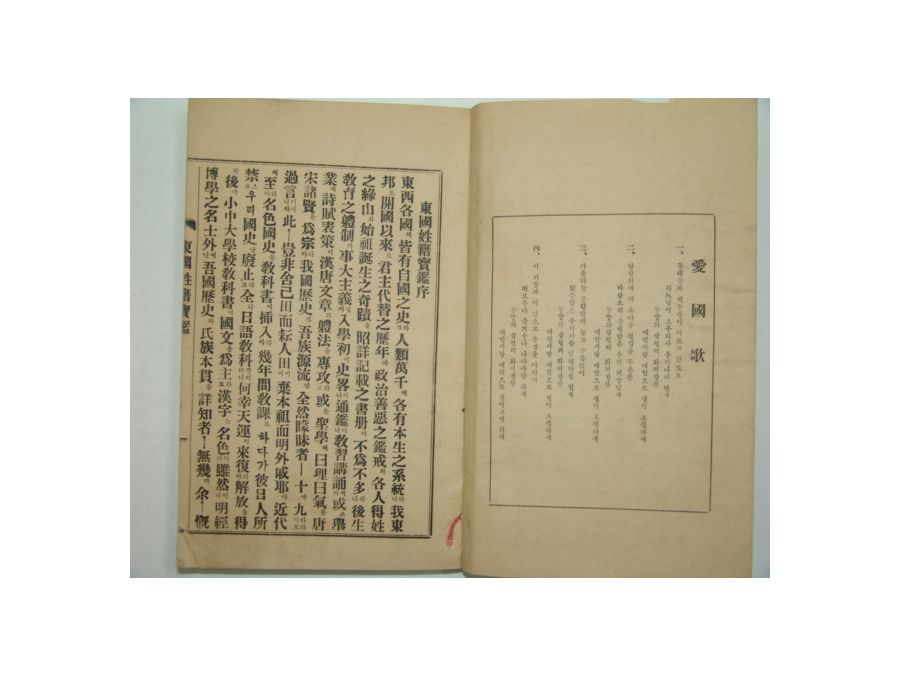 愛國歌
一、동해물과 백두산이 마르고
하느님이 보우하사 우리나라 만세
무궁화 삼천리 화려강산
대한사람 대한으로 길이 보전하세
二、남산위에 저 소나무 철갑을 두른듯
바람소리 불변함은 우리 기상일세
무궁화 삼천리 화려강산
대한사람 대한으로 길이 보전하세
三、가을하늘 공활한데 높고 구름없이
밝은달은 우리가슴 일편단심 일세
무궁화 삼천리 화려강산
대한사람 대한으로 길이 보전하세
四、이 기상과 이 맘으로 충성을 다하여
괴로우나 즐거우나 나라사랑 하세
무궁화 삼천리 화려강산
대한사람 대한으로 길이 보전하세
東國姓籍寶鑑序
東西各國에皆有自國之史하고人類萬千에各有本生之系統하니我東
邦도開國以來로君主代替之歷年과政治善惡之鑑戒와各人得姓
之緣由와始祖誕生之奇蹟을昭詳記載之書册이不爲不多나後生
敎育之體制가事大主義일새入學初에史畧이나通鑑이나敎習講誦이며或은擧
業에詩賦表策이漢唐文章의體法을專攻하고或은聖學에曰理曰氣을唐
宋諸賢을爲宗하야我國歷史와吾族源流난全然矇昧者ㅣ十에九라하야도
過言이아니라此ㅣ豈非舍己田而耘人田이며棄本祖而明外戚耶아近代
에至하야名色國史을敎科書에揷入하야幾年間敎課로하다가彼日人所
禁으로우리國史난廢止고全혀日語敎科러니何幸天運이來復하야解放을得
한後에小中大學校敎科書에國文을爲主하고漢字는名色이나雖然이나明經
博學之名士外에난吾國歷史와氏族本貫을詳知者ㅣ無幾라余ㅣ慨
東國姓籍寶鑑